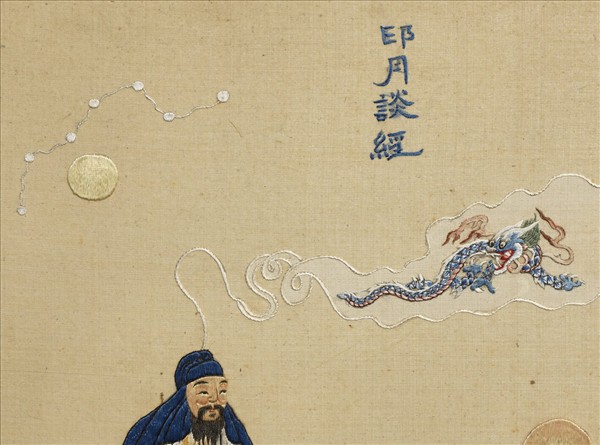 印月談經